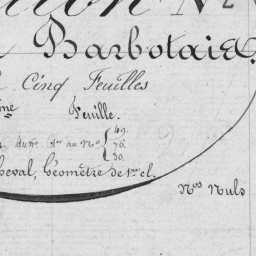 tion N°
Barbotaie
Cinq Feuilles
ème Feuille.
du N° 1er au N° { 49.
70.
30.
heval, Géomètre de 1re cl.
Nos Nuls